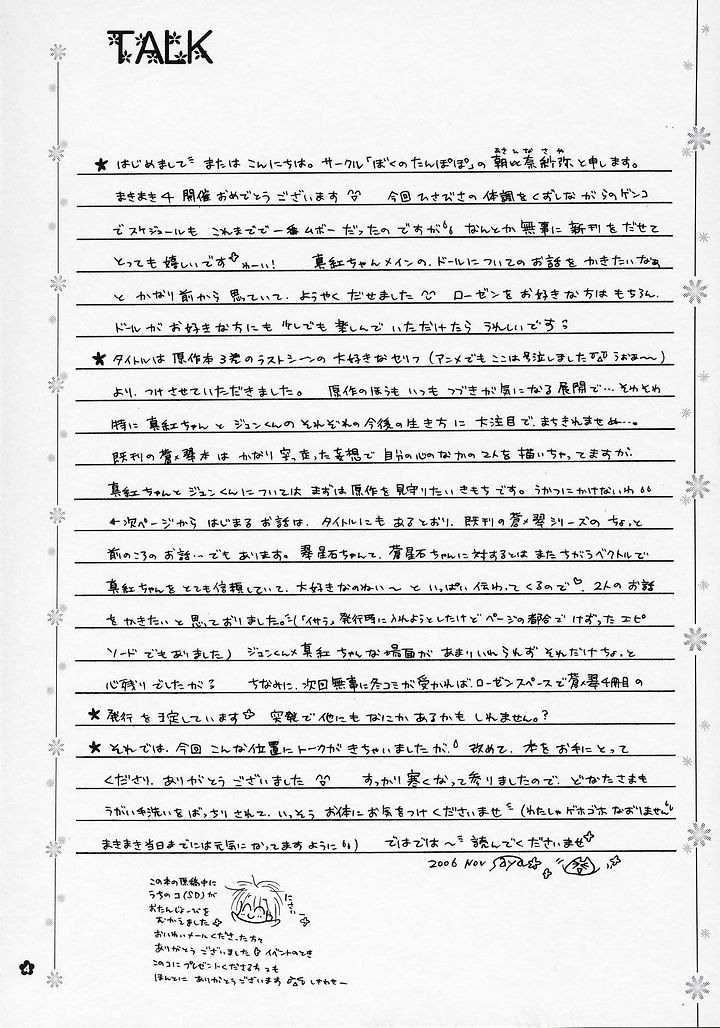 TALK
あさひなさや
★ はじめまして または こんにちは。サークル「ぼくのたんぽぽ」の 朝比奈紗弥 と申します。
まきまき4 開催おめでとう ございます 今回 ひさびさの 体調を くずしな がらのゲンコ
で スケジュールも これまでで 一番ムボー だったの ですが なんとか 無事に 新刊 を だせて
とっても 嬉しいです わーい! 真紅ちゃんメインの、ドールについての お話を かきたいなぁ
と かなり前から 思っていて、ようやく だせました ローゼンを お好きな方は もちろん、
ドールが お好きな方にも 少しでも 楽しんで いただけたら うれしいです
★ タイトルは 原作本 3巻のラストシーンの 大好きなセリフ (アニメでも ここは号泣しました うおぁ〜)
より、つけさせていただきました。 原作のほうも いつも つづきが気になる 展開で… それぞれ
特に 真紅ちゃん と ジュンくんの それぞれの今後の生き方 に 大注目で、まちきれませぬ…。
既刊の 蒼×翠本 は かなり 突っ走った 妄想で 自分の心のなかの2人を 描いちゃってますが、
真紅ちゃんと ジュンくんについては まずは原作を 見守りたい きもちです。うかつにかけないわ
←次ページから はじまる お話は、タイトルにも あるとおり、既刊の蒼×翠シリーズの ちょっと
前のころの お話… でも あります。翠星石ちゃんて、蒼星石ちゃんに対するとは また ちがうベクトルで
真紅ちゃんを とても信頼していて、大好きなのねい〜 と いっぱい 伝わって くるので、2人の お話
をかきたい と 思って おりました。(「イサラ」発行時に 入れようとしたけど ページの都合で けずった エピ
ソード でもありました) ジュンくん×真紅 ちゃん な 場面が あまり いれられず それだけ ちょっと
心残り でしたが ちなみに、次回 無事に 冬コミが 受かれば、ローゼンスペースで 蒼×翠 4冊目 の
★ 発行 を 予定しています 突発で 他にも なにか あるかも しれません。?
★ それでは、今回 こんな位置に トークが きちゃいましたが、改めて、本を お手にとって
くださり、ありがとう ございました すっかり 寒くなって 参りましたので、どなたさまも
うがい手洗いを ばっちり されて、いっそう お体に お気をつけ くださいませ (わたしゃ ゲホゴホ なおりません
まきまき当日までには 元気に なってます ように) ではでは〜 読んでくださいませ
2006 Nov saya
この本の原稿中に
うちのコ(SD)が
おたんじょーびを
むかえました
おいわいメールくださった方々
ありがとう ございました イベントのとき
このコに プレゼントくださる方々も
ほんとに ありがとうございます しやわせー
にさい
4